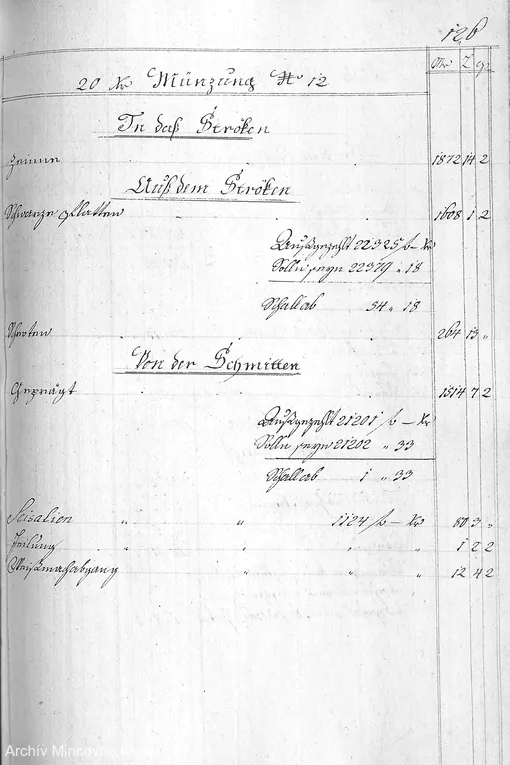 126
Mr L q
20 Kr Münzung No 12
In daß Ströken
Zeinne 1872 14 2
Auß dem Ströken
Schwarze Platten 1608 1 2
Außgezehlt 22325 f – Kr
Solln seyn 22379 " 18
Schallab 54 " 18
Schroten 264 13 "
Von der Schmitten
Geprägt 1514 7 2
Außgezehlt 21201 f – Kr
Solln seyn 21202 " 33
Schallab 1 " 33
Scisalien " " 1124 f – Kr 80 3 "
Feilung " " " " 1 2 2
Weißmachabgang " " " 12 4 2
Archív Mincovne